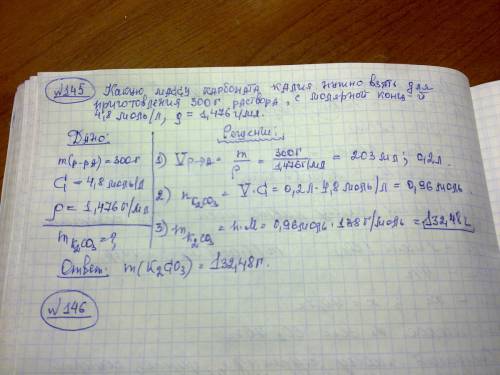 №145 Какую массу карбоната калия нужно взять для
приготовления 300г раствора, с молярной конц-й
4,8 моль/л, ρ = 1,476г/мл.
Дано: Решение:
m(р-ра) = 300г
C = 4,8 моль/л
ρ = 1,476г/мл
m K2CO3 = ?
1) Vр-ра = m/ρ = 300г/1,476г/мл = 203 мл; 0,2л.
2) n K2CO3 = V·C = 0,2л·4,8 моль/л = 0,96 моль.
3) m K2CO3 = n·M = 0,96моль·138г/моль = 132,48г
Ответ: m(K2CO3) = 132,48г.
№146